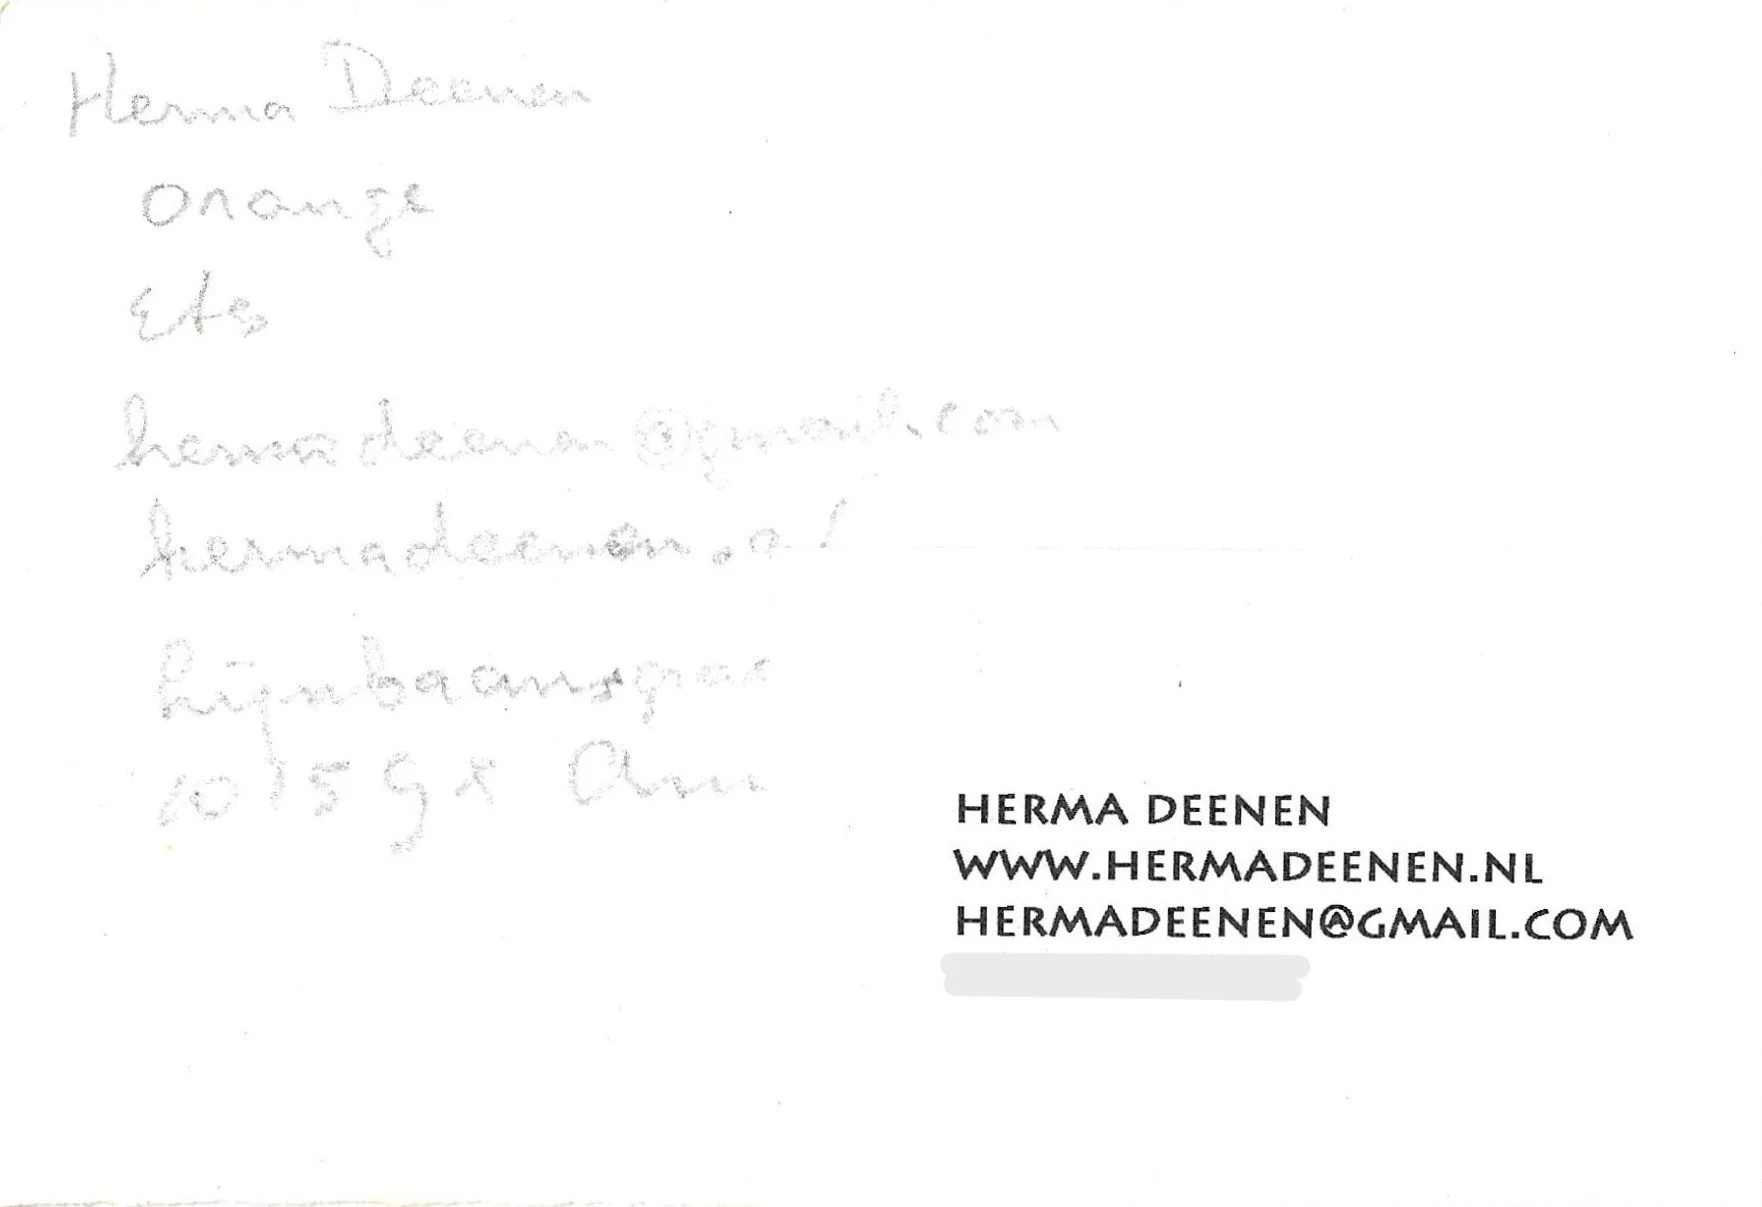 Herma Deenen
orange
Ets
hermadeenen@gmail.com
hermadeenen.nl
Lijnbaansgrac
1015 gx Am
HERMA DEENEN
WWW.HERMADEENEN.NL
HERMADEENEN@GMAIL.COM